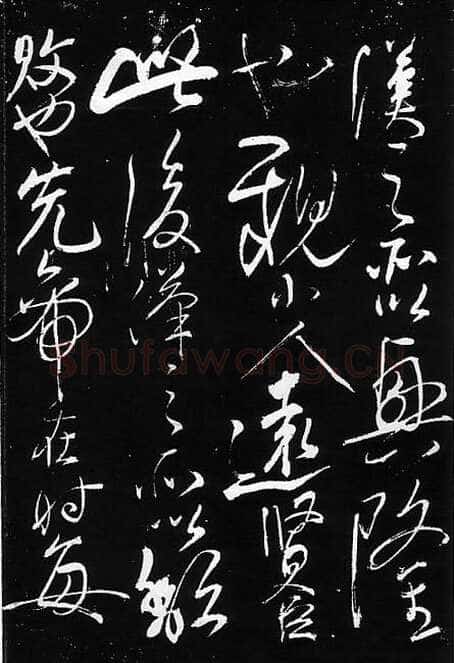 漢之所以興隆
也親小人遠賢臣
此後漢之所以頹
敗也先帝在時每
Shufawang.CN